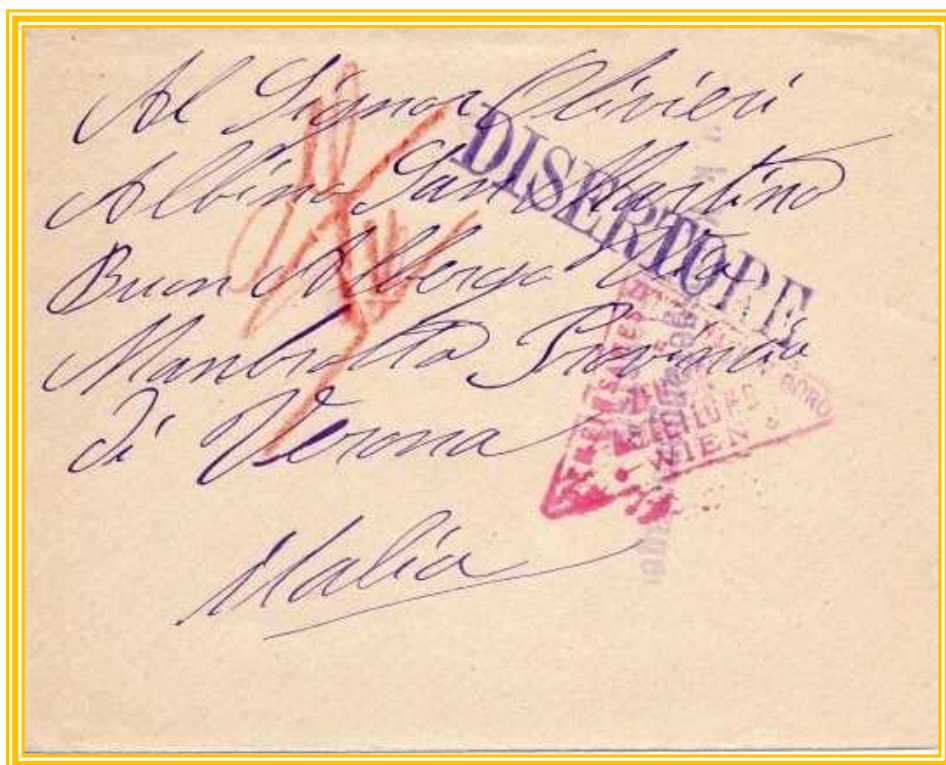 Al Signor Olivieri
Albino San Martino
Buon Albergo Via
Manbrotta Provincia
di Verona
Italia
DISERTORE
WIEN